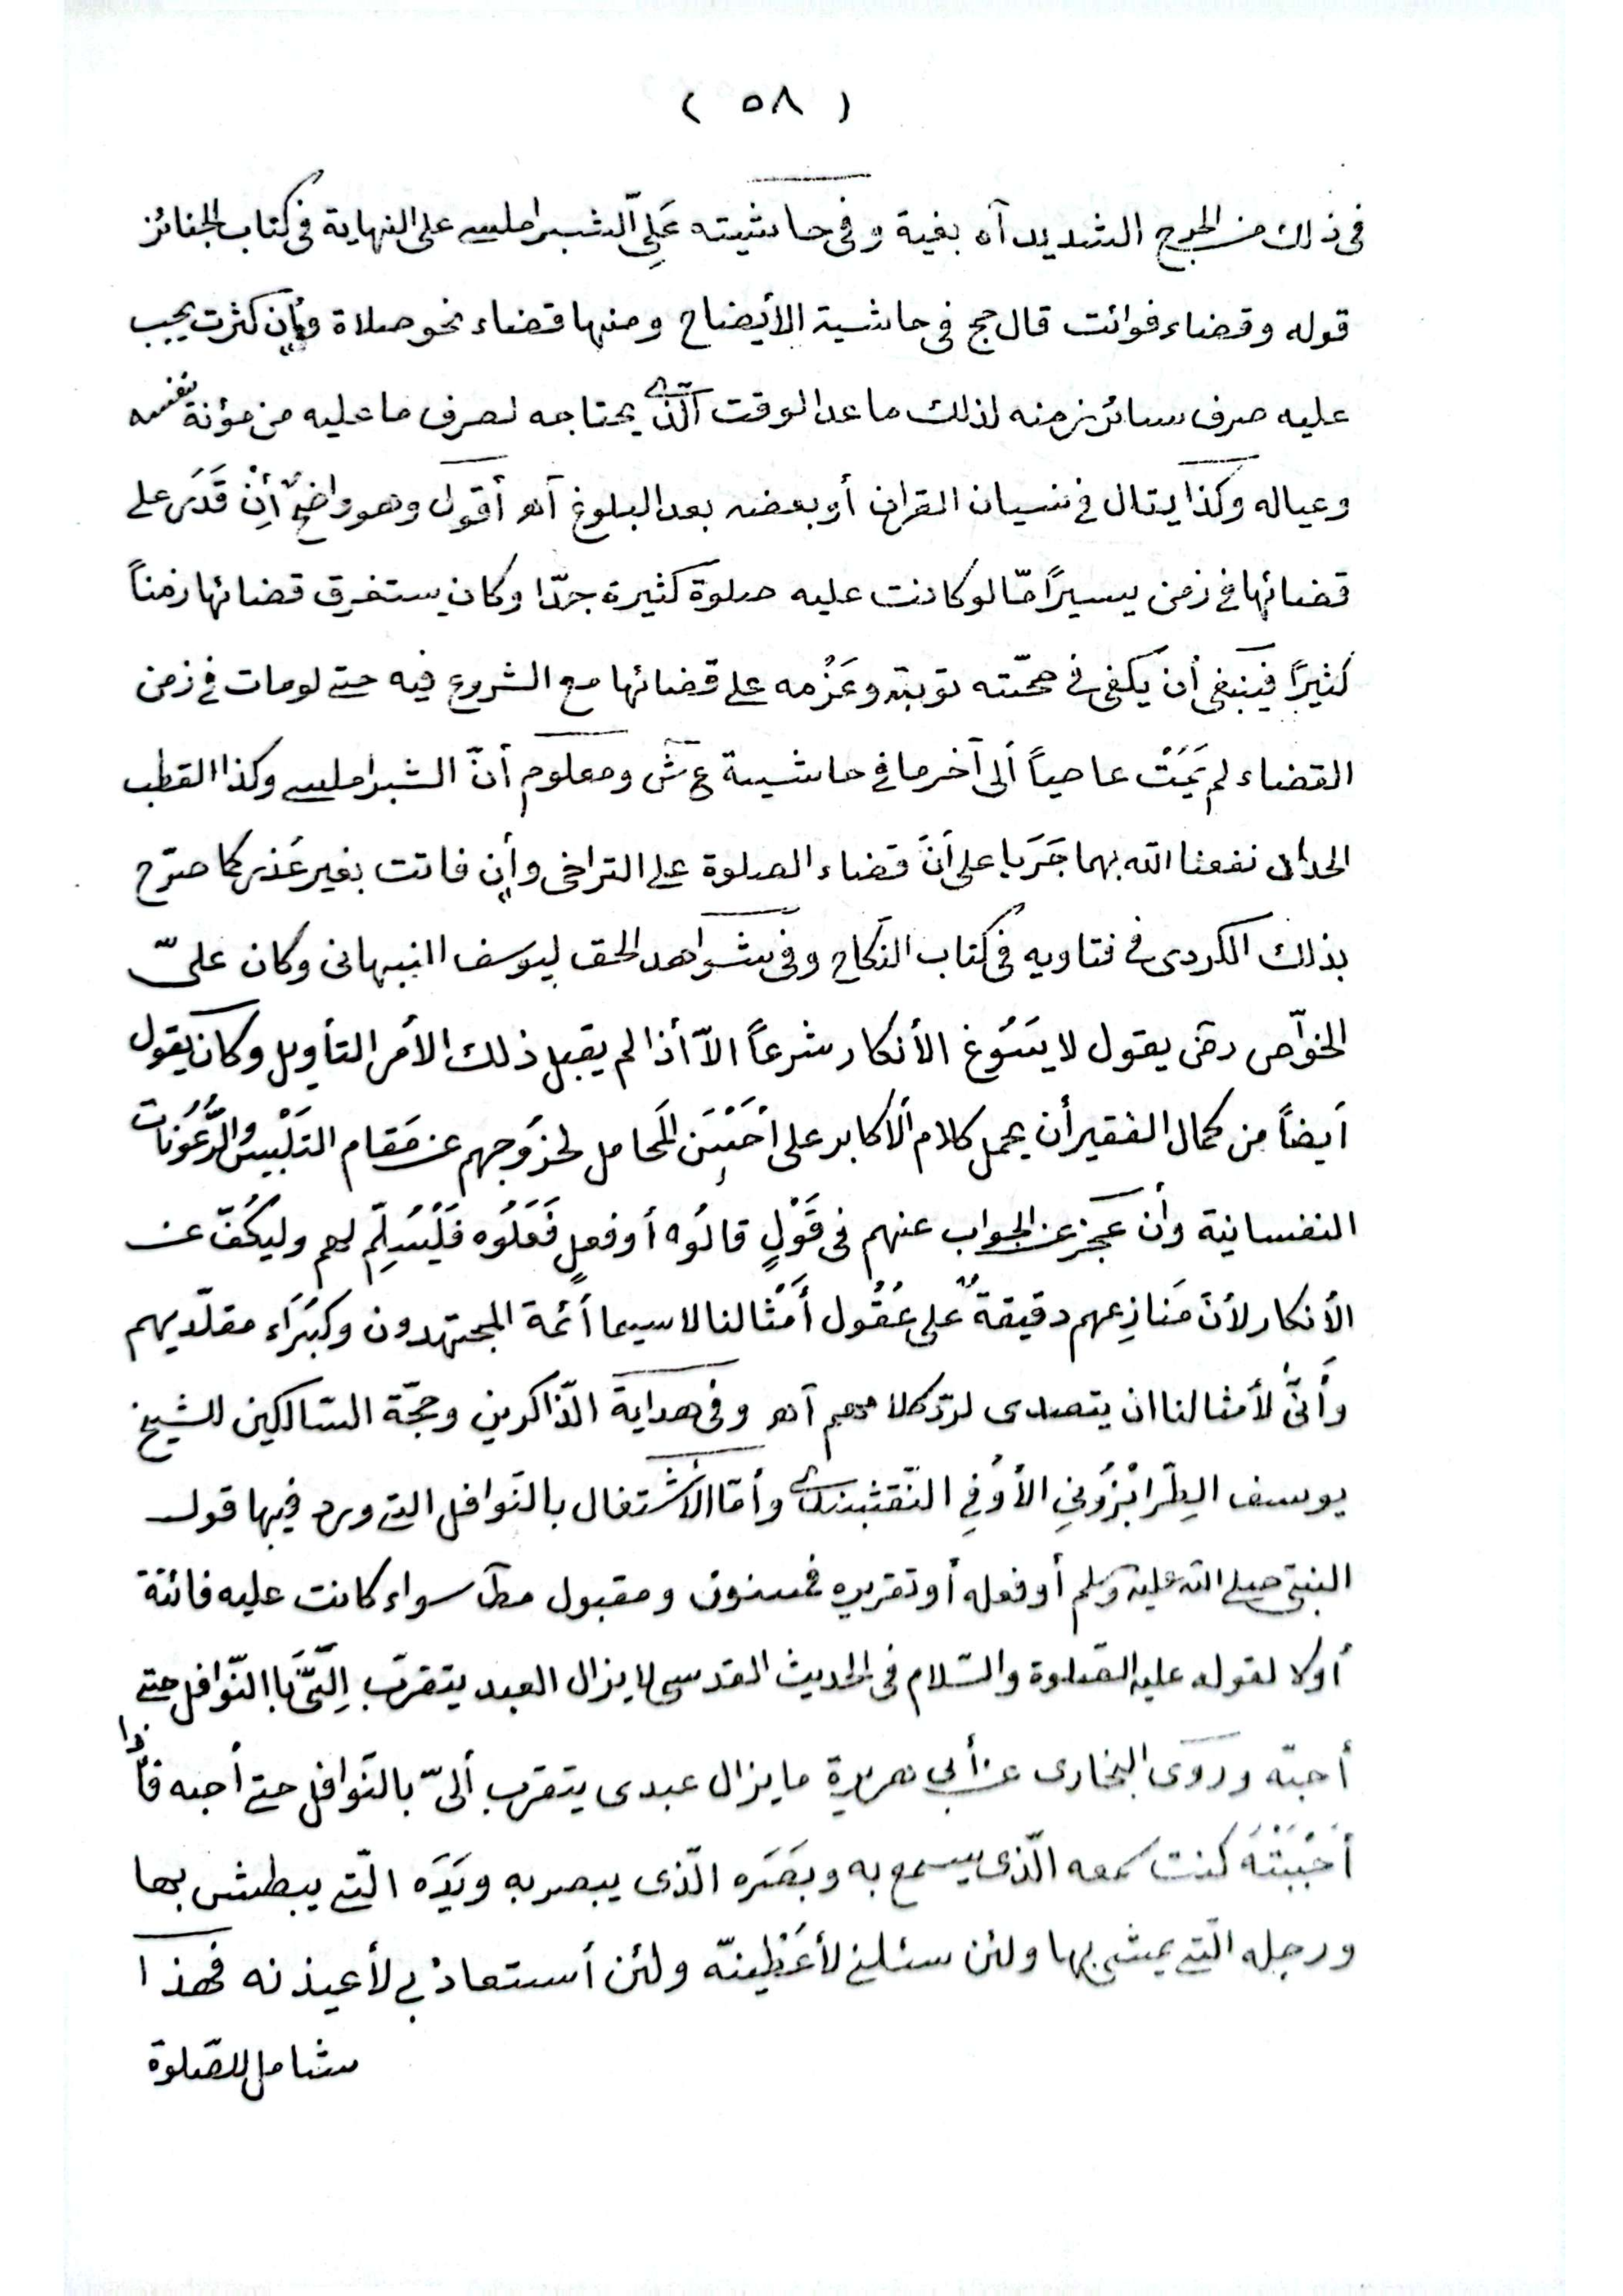 ( ٥٨ )
فى ذلك من الحرج الشديد آه بغية وفى حاشيته عَلِىّ الشبراملسى على النهاية فى كتاب الجنائز
قوله وقضاء فوائت قال حج فى حاشية الأيضاح ومنها قضاء نحو صلاة وإن كثرت يجب
عليه صرف سائر زمنه لذلك ما عدا الوقت الّذى يحتاجه لصرف ما عليه من مؤنة نفسه
وعياله وكذا يقال فى نسيان القرأن أو بعضه بعد البلوغ آهـ أقول وهو واضحٌ أِنْ قَدَرَ على
قضائها فى زمن يسيرًا مّا لو كانت عليه صلوة كثيرة جدّا وكان يستغرق قضائها زمناً
كثيرًا فينبغى أن يكفى فى صحّته توبته وعَزْمه على قضائها مع الشروع فيه حتى لو مات فى زمن
القضاء لم يَمُتْ عاصياً ألى آخر ما فى حاشية ع ش ومعلوم أنّ الشبراملسى وكذا القطب
الحداد نفعنا الله بهما جَرَيا على أنّ قضاء الصلوة على التراخى وأِن فاتت بغير عُذر كما صرّح
بذلك الكردى فى فتاويه فى كتاب النكاح وفى شواهد الحق ليوسف النبهانى وكان علىّ
الخوّاص رض يقول لا يَسُوغ الأنكار شرعاً الاّ أذا لم يقبل ذلك الأمر التأويل وكان يقول
أيضاً من كمال الفقير أن يحمل كلام الأكابر على أحْسَن المَحامل لخروجهم عن مَقام التَلْبيس والرُّعُونات
النفسانية وأن عَجَز عن الجواب عنهم فى قَوْلٍ قالُوه أو فعلٍ فَعَلُوه فَلْيُسَلِّم لهم وليكُفّ عن
الأنكار لأنّ مَنازِعهم دقيقةٌ على عُقُول أَمْثالنا لا سيما أئمة المجتهدون وكُبَرَاء مقلّديهم
وأَنّى لأمثالنا ان يتصدى لردّ كلامهم آهـ وفى هداية الذّاكرين وحجّة السّالكين للشيخ
يوسف الطِرابْزُونِى الأوُفِى النّقشبندى وأمّا الأشتغال بالنّوافل التى ورد فيها قول
النبىّ صلى الله عليه وسلم أو فعله أو تقريره فمسنون ومقبول مط سواء كانت عليه فائتة
أو لا لقوله عليه الصّلوة والسّلام فى الحديث القدسى لا يزال العبد يتقرّب اِلَىَّ باالنّوافل حتى
أحبّه وروَى البخارى عن أبى هريرة ما يزال عبدى يتقرب ألىّ بالنّوافل حتى أحبه فأذا
أَحْبَبْتُهُ كنت سمعه الّذى يسمع به وبَصَره الّذى يبصر به ويَدَه الّتى يبطش بها
ورجله الّتى يمشى بها ولئن سئلنى لأعْطينّه ولئن أستعاذ بى لأعيذنه فهذا
شامل للصّلوة